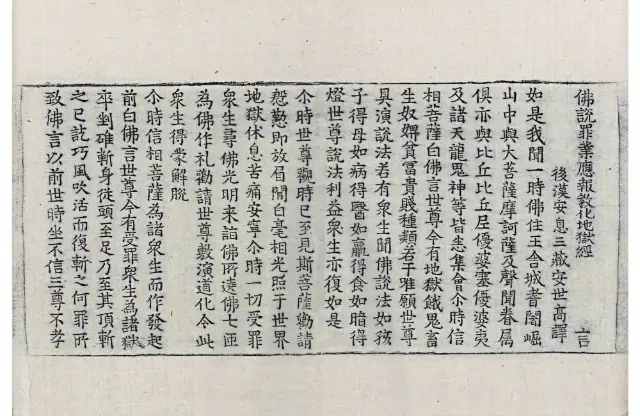 佛說罪業應報教化地獄經
後漢安息三藏安世高譯 言
如是我聞一時佛住王舍城耆闍崛
山中與大菩薩摩訶薩及聲聞眷属
俱亦與比丘比丘尼優婆塞優婆夷
及諸天龍鬼神等皆悉集會尒時信
相菩薩白佛言世尊今有地獄餓鬼畜
生奴婢貧富貴賤種類若干唯願世尊
具演說法若有衆生聞佛說法如孩
子得母如病得醫如羸得食如暗得
燈世尊說法利益衆生亦復如是
尒時世尊觀時已至見斯菩薩勸請
慇懃即放眉間白毫相光照于世界
地獄休息苦痛安寧尒時一切受罪
衆生尋佛光明来詣佛所遶佛七匝
為佛作礼勸請世尊敷演道化令此
衆生得蒙解脫
尒時信相菩薩為諸衆生而作發起
前白佛言世尊今有受罪衆生為諸獄
卒剉碓斬身從頭至足乃至其頂斬
之已訖巧風吹活而復斬之何罪所
致佛言以前世時坐不信三尊不孝